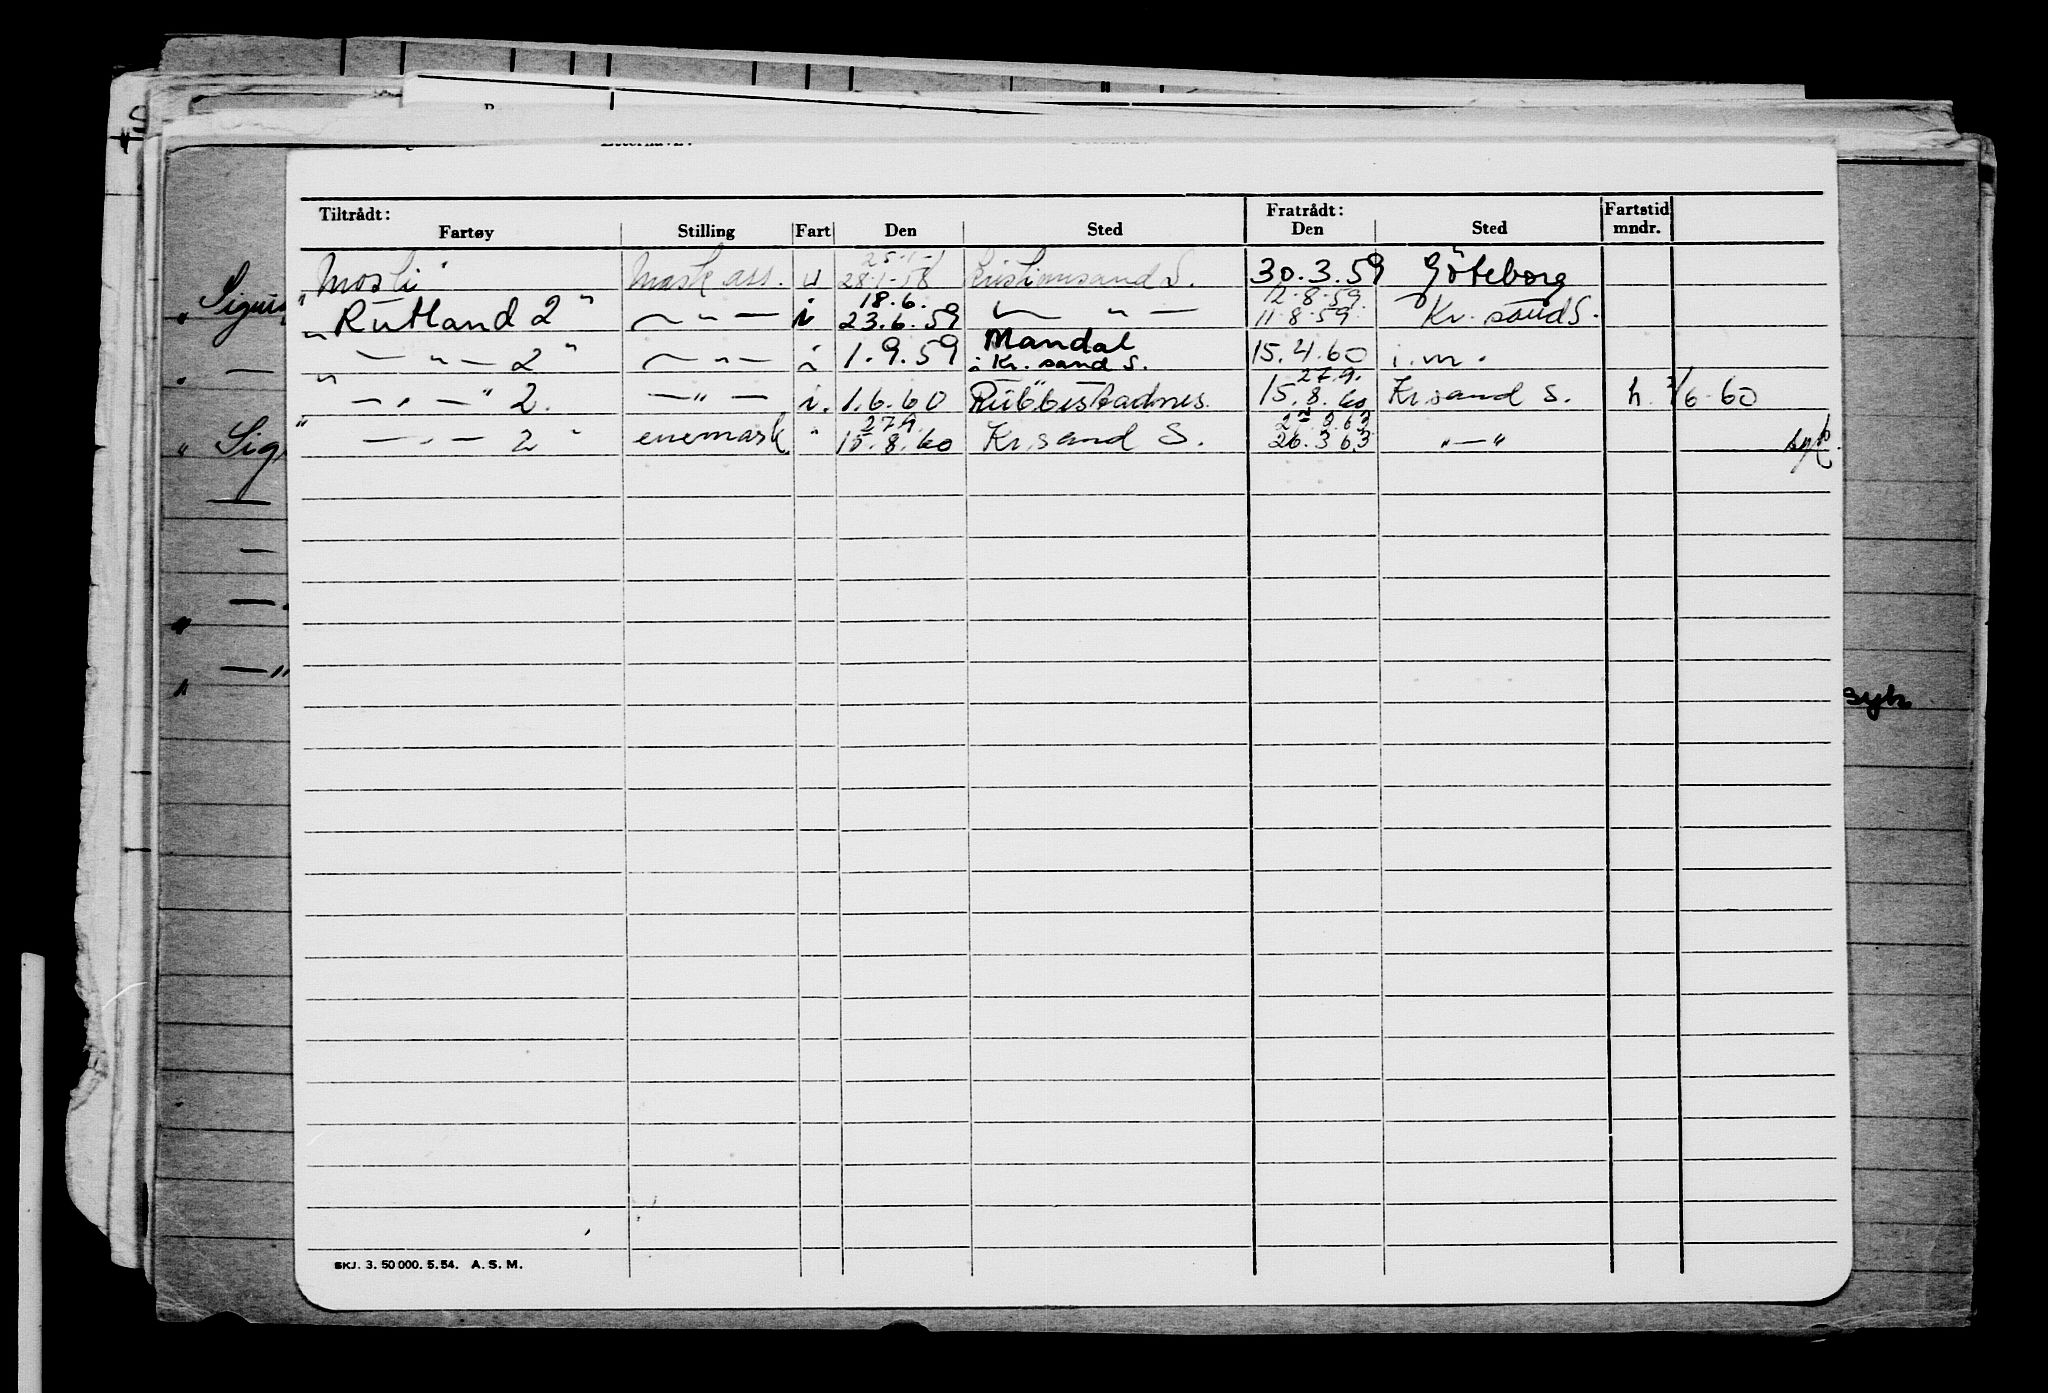 Tiltrådt: Fratrådt: Fartstid
Fartøy Stilling Fart Den Sted Den Sted mndr.
25.1-
Mosli" Mask ass. u 28.1-58 Kristiansand S. 30.3.59 Göteborg
18.6. 12.8.59
"Rutland 2" — " — i 23.6.59 — " — 11.8.59 Kr. sand S.
Mandal
" — " — 2" — " — i 1.9.59 Kr. sand S. 15.4.60 i.m.
27.9.
" — " — " 2. — " — i. 1.6.60 Rubbestadnes. 15.8.60 Kr.sand S. h. 2/6-60
27.9. 2.63
" — " — 2" enemask " 15.8.60 Kr.sand S. 26.3.63 " — "
SKJ. 3. 50 000. 5. 54. A. S. M.
Sig
syk